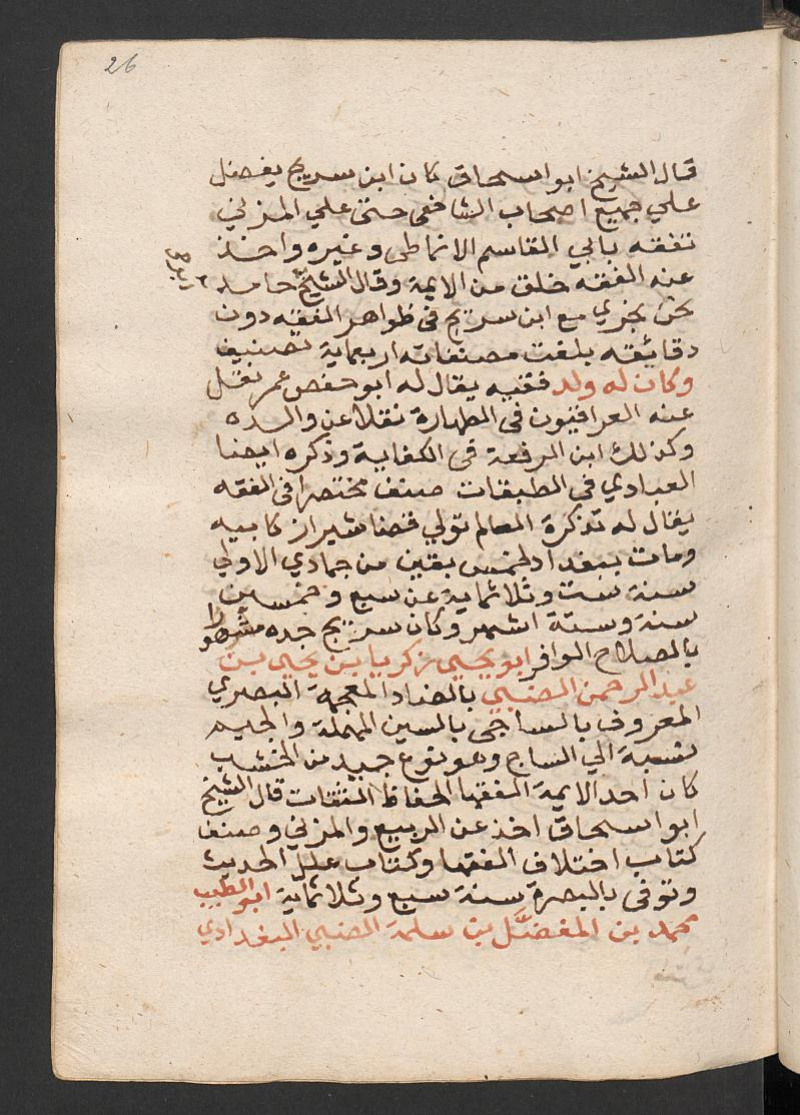 26
قال الشيخ ابو اسحاق كان ابن سريج يفضل
علي جميع اصحاب الشافعي حتي علي المزني
تفقه بابي القاسم الانماطي وغيره واخذ
عنه الفقه خلق من الايمة وقال الشيخ حامد
نحن نجري مع ابن سريج في ظواهر الفقه دون
دقائقه بلغت مصنفاته اربعماية تصنيف
وكان له ولد فقيه يقال له ابو حفص عمر نقل
عنه العراقيون في الطهارة نقلا عن والده
وكذلك ابن الرفعة في الكفاية وذكره ايضا
العبادي في الطبقات صنف مختصرا في الفقه
يقال له تذكرة العالم تولي قضا شيراز كابيه
ومات ببغداد لخمس بقين من جمادي الاولي
سنة ست وثلاثماية عن سبع وخمسين
سنة وستة اشهر وكان سريج جده مشهورا
بالصلاح الوافر ابو يحيي زكريا بن يحيي بن
عبد الرحمن الضبي بالضاد المعجمة البصري
المعروف بالساجي بالسين المهملة والجيم
نسبة الي الساج وهو نوع جيد من الخشب
كان احد الايمة الفقها الحفاظ الثقات قال الشيخ
ابو اسحاق اخذ عن الربيع والمزني وصنف
كتاب اختلاف الفقها وكتاب علل الحديث
وتوفي بالبصرة سنة سبع وثلاثماية ابو الطيب
محمد بن المفضّل بن سلمة الضبي البغدادي